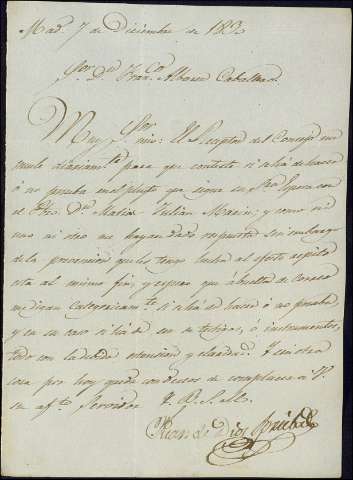 Mad. 7 de Diciembre de 18
Sor. Dn. Fran.co Alvarez
Muy Sor. mio: El Receptor del Concejo
para que conteste si se há de hacer
ó no prueba en el pleyto que sigue con
el Pbro. Dn. Matias Julian Marin; y como ni
uno ni otro me hayan dado respuesta sin embargo
de la prevencion que les tengo hecha al efecto repito
esta al mismo fin, y espero que á buelta de Correo
me digan Categoricam.te si se há de hacer ó no prueba,
y en su caso si há de ser de testigos, ó instrumentos,
todo con la devida extension y claridad. Y sin otra
cosa por hoy queda con deseos de complacer á V.
su af.to Servidor Q. B. S. M.
Juan de Dios